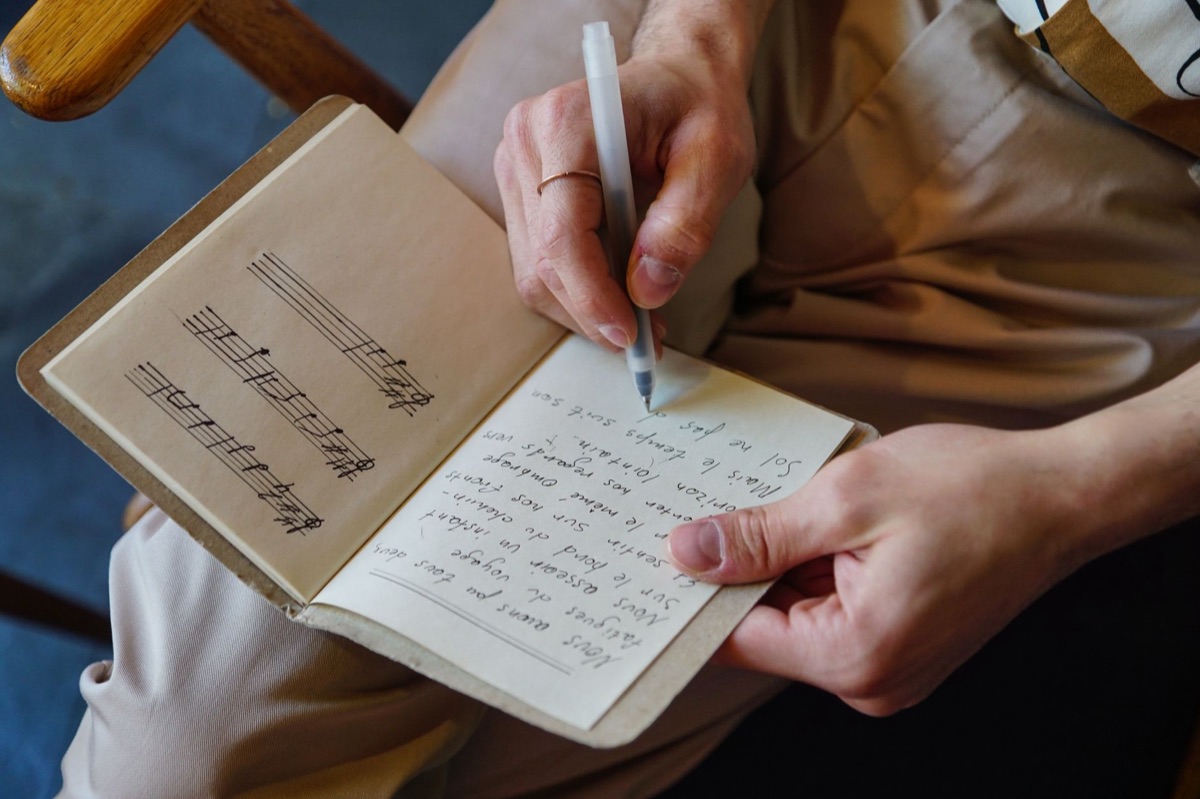 Nous avons pu tous deux,
fatigues du voyage
Nous asseoir un instant
sur le bord du chemin-
Et sentir sur nos fronts
le même ombrage
nos regards vers
lointain-
Mais le temps suit son
Sol ne pas